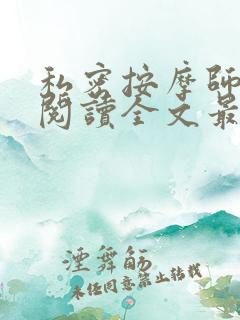 私密按摩師
閱讀全文最
湮舞觞
未经同意禁止转载